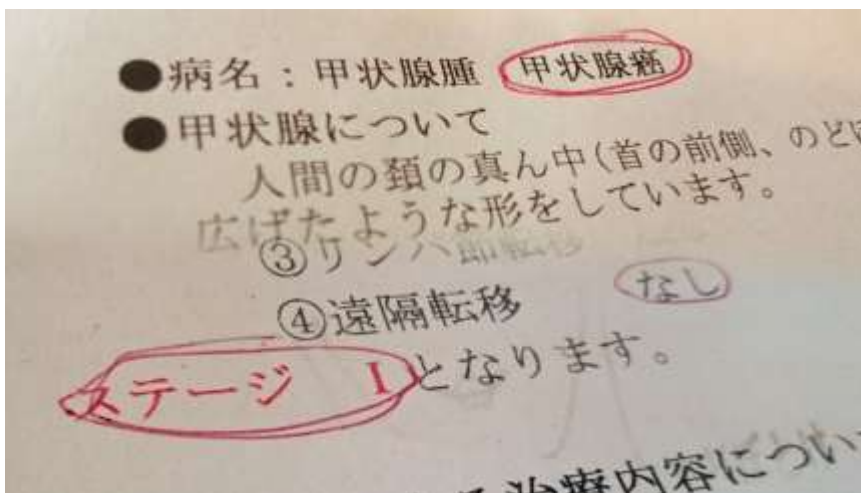 ●病名:甲状腺腫 甲状腺癌
●甲状腺について
人間の頚の真ん中(首の前側、のど
広げたような形をしています。
③リンパ節転移
④遠隔転移 なし
ステージ I となります。
治療内容につい